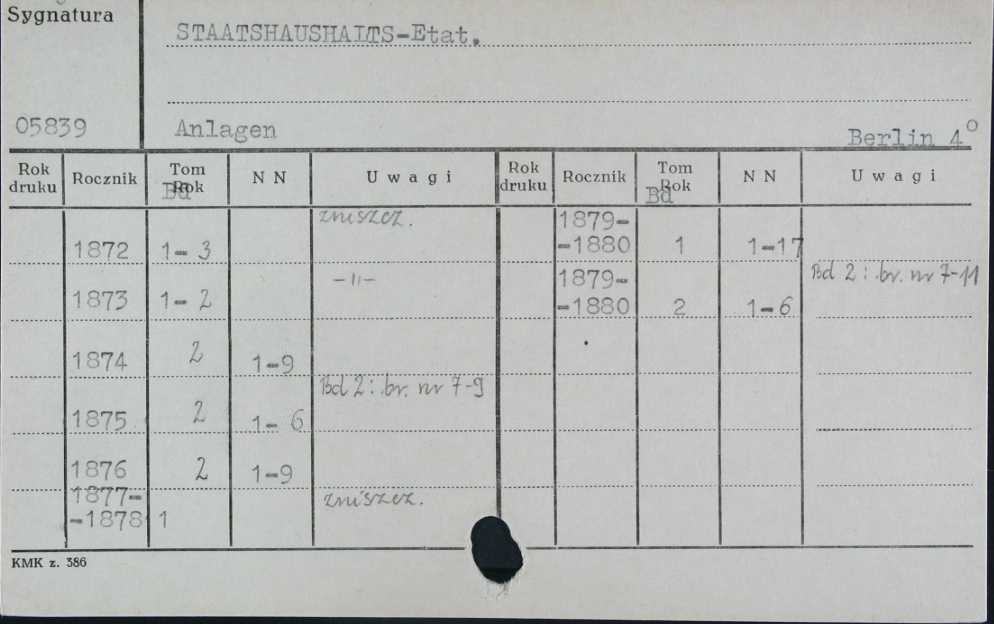 Sygnatura
STAATSHAUSHALTS-Etat.
05839
Anlagen
Berlin 4°
Rok druku Rocznik Tom Rok Bd N N Uwagi Rok druku Rocznik Tom Rok Bd N N Uwagi
1872 1-3 zniszcz. 1879--1880 1 1-17
1873 1-2 -"- 1879--1880 2 1-6 Bd 2: br. nr 7-11
1874 2 1-9
1875 2 1-6 Bd 2: br. nr 7-9
1876 2 1-9
1877--1878 1 zniszcz.
KMK z. 386